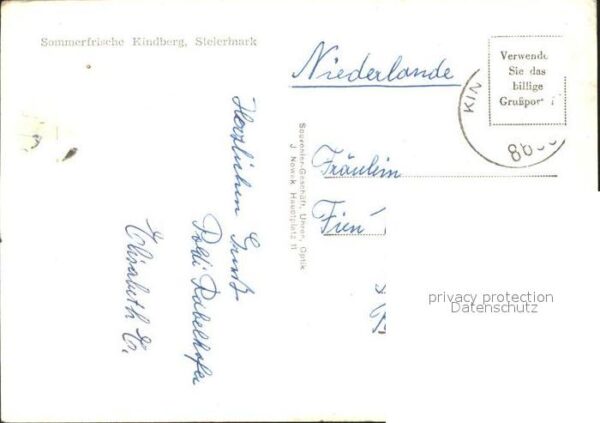 Sommerfrische Kindberg, Steiermark
Niederlande
Verwende
Sie das
billige
Grußpor
KIN
Souvenier-Geschäft, Uhren, Optik
J. Nowak, Hauptplatz 11
Fräulein
Fien
Herzlichen Gruß
Poldi Rabelhofer
Elisabeth E.
privacy protection
Datenschutz